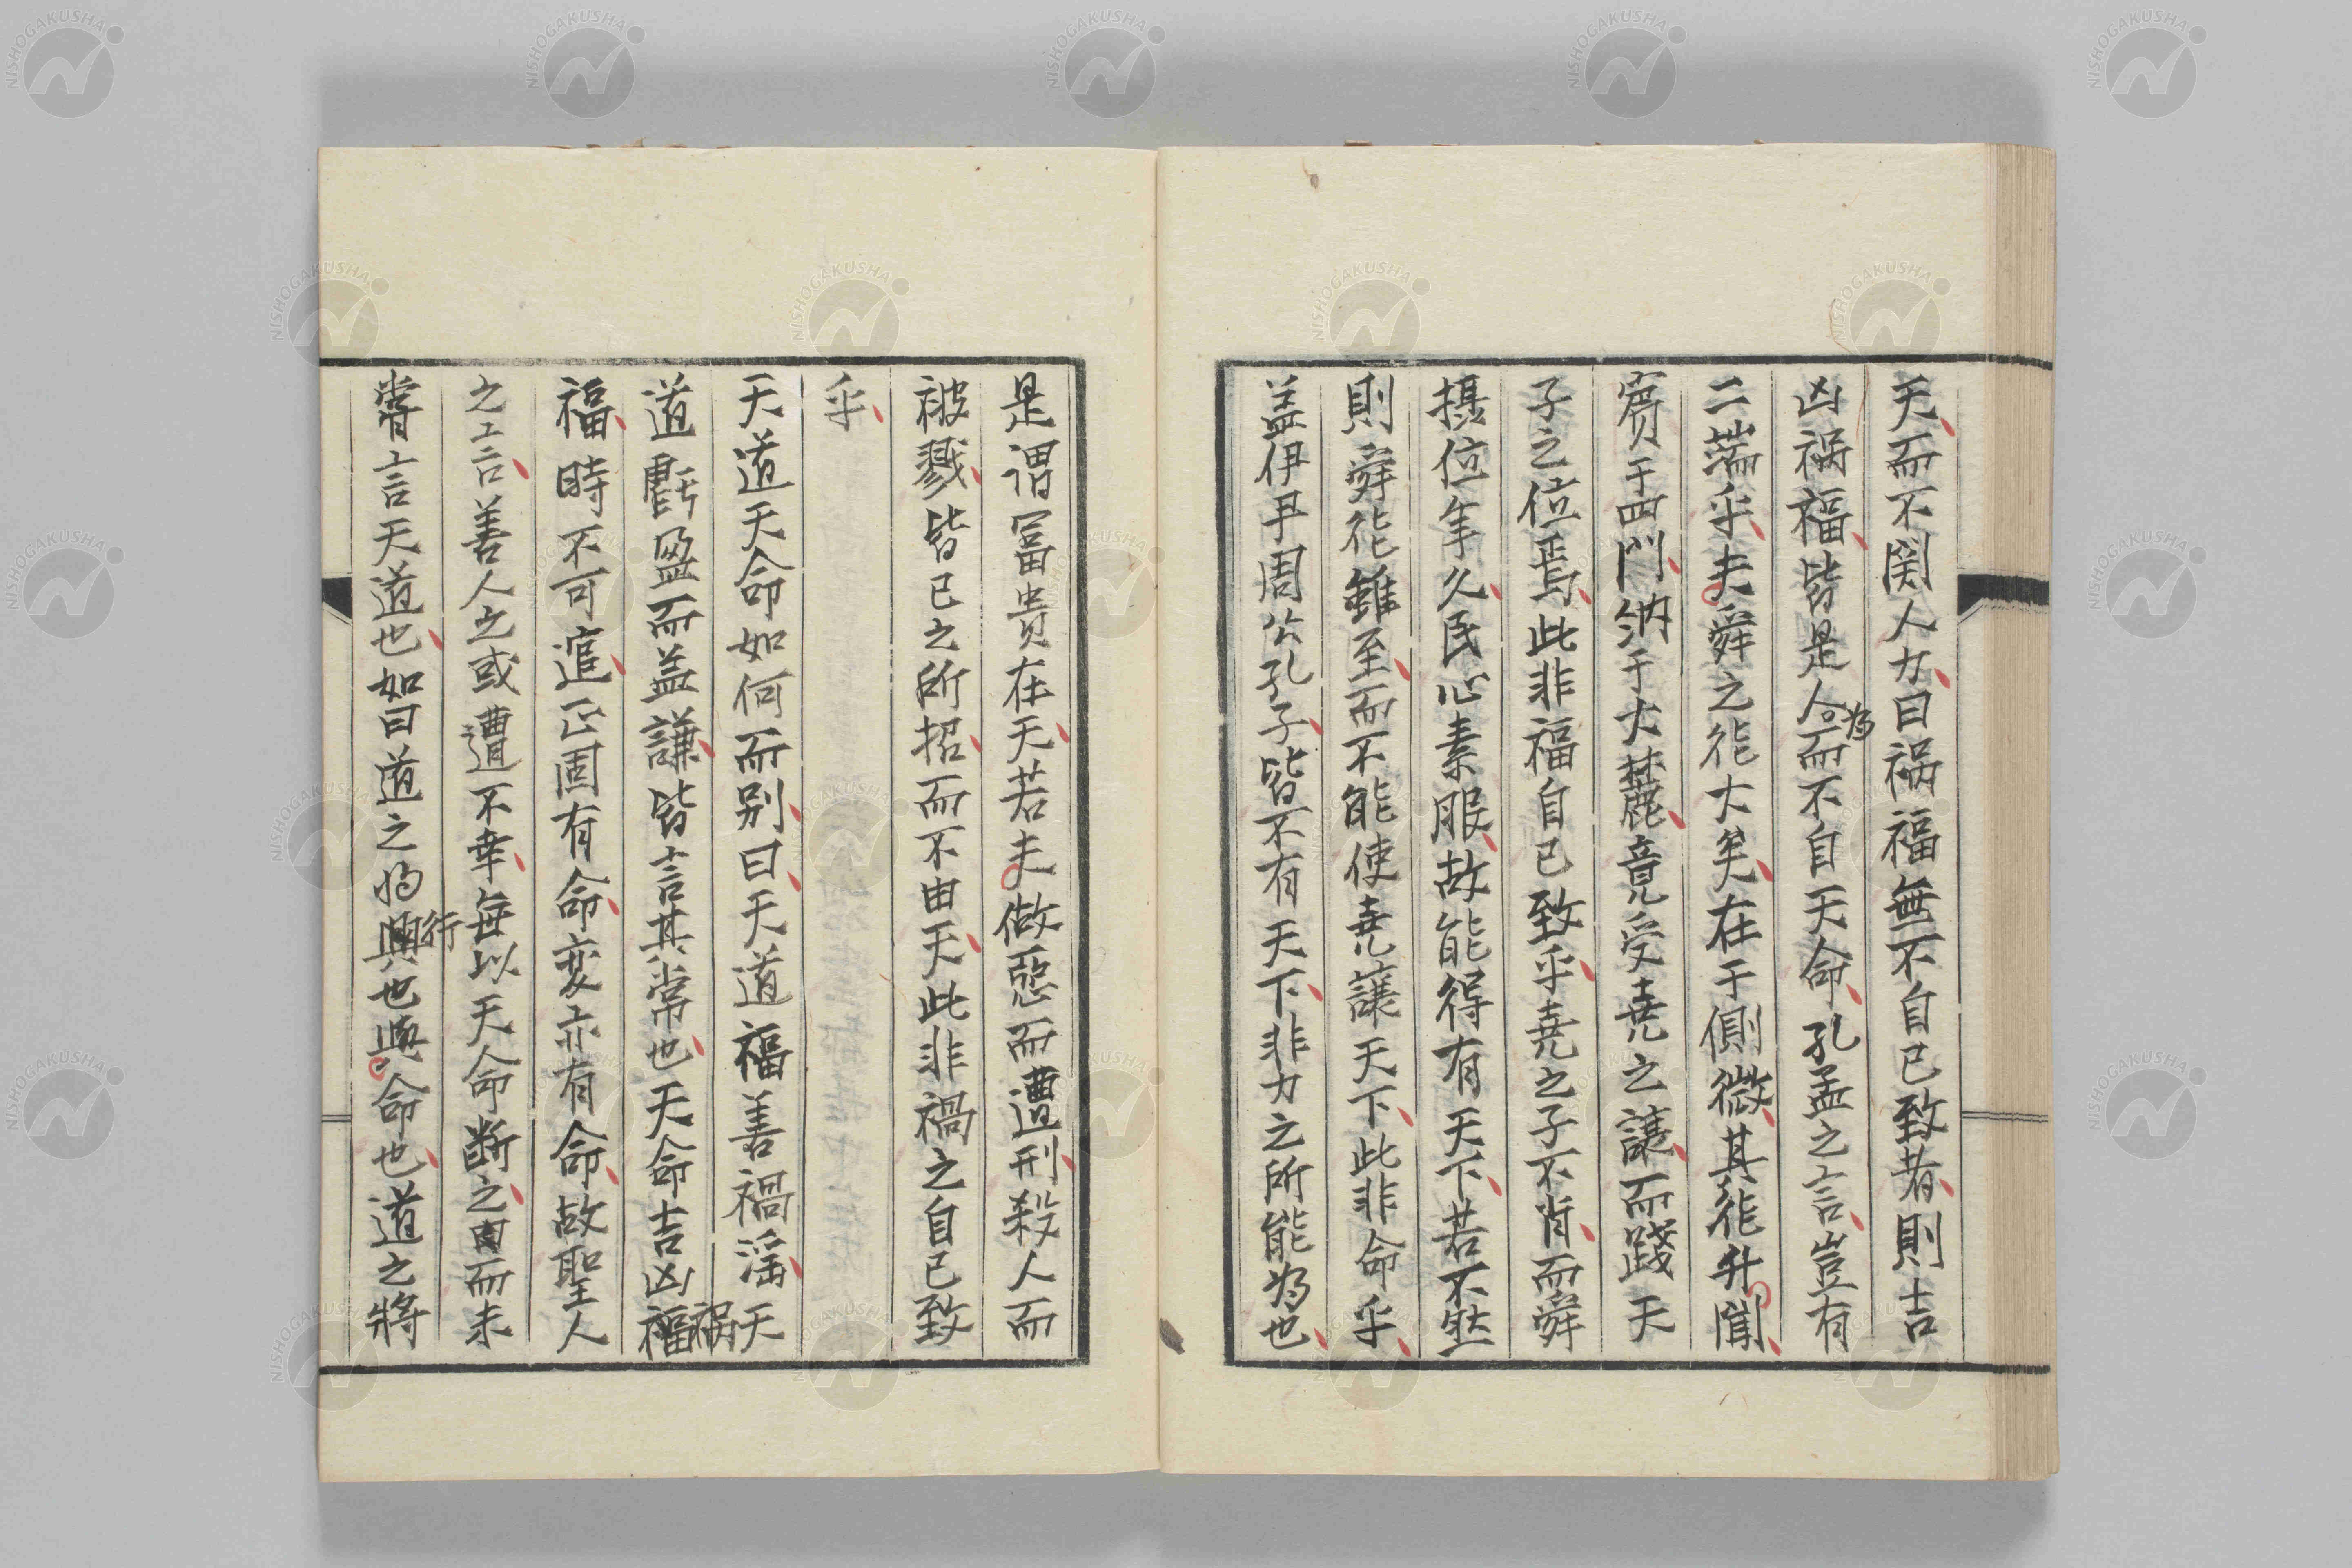 天而不関人力曰禍福無不自已致者則吉
凶禍福皆是人為而不自天命孔孟之言豈有
二端乎夫舜之德大矣在于側微其德升聞
賓于四門納于大麓竟受堯之讓而踐天
子之位焉此非福自已致乎堯之子不肖而舜
攝位年久民心素服故能得有天下若不然
則舜德雖至而不能使堯讓天下此非命乎
蓋伊尹周公孔子皆不有天下非力之所能為也
是謂冨貴在天若夫做惡而遭刑殺人而
被戮皆已之所招而不由天此非禍之自已致
乎
天道天命如何而别曰天道福善禍淫天
道虧盈而益謙皆言其常也天命吉凶禍
福時不可逭正固有命変亦有命故聖人
之言善人之或遭不幸每以天命断之而未
嘗言天道也如曰道之将行也與命也道之將
NISHOGAKUSHA